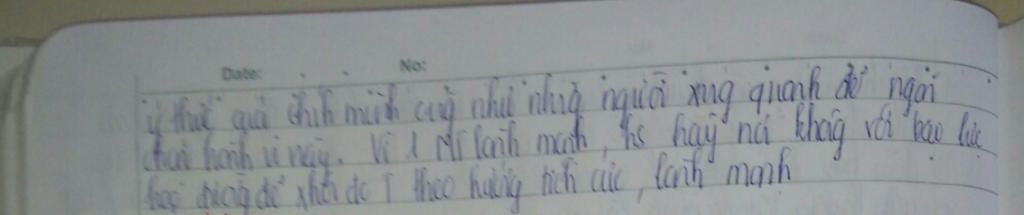 Date: No:
ý thức của chính mình cũg như nhữg người xug quanh để ngăn
chặn hành vi này. Vì 1 MT lành mạnh, hs hãy nói khôg với bạo lực
học đườg để xhội đc theo hướng tích cực, lành mạnh